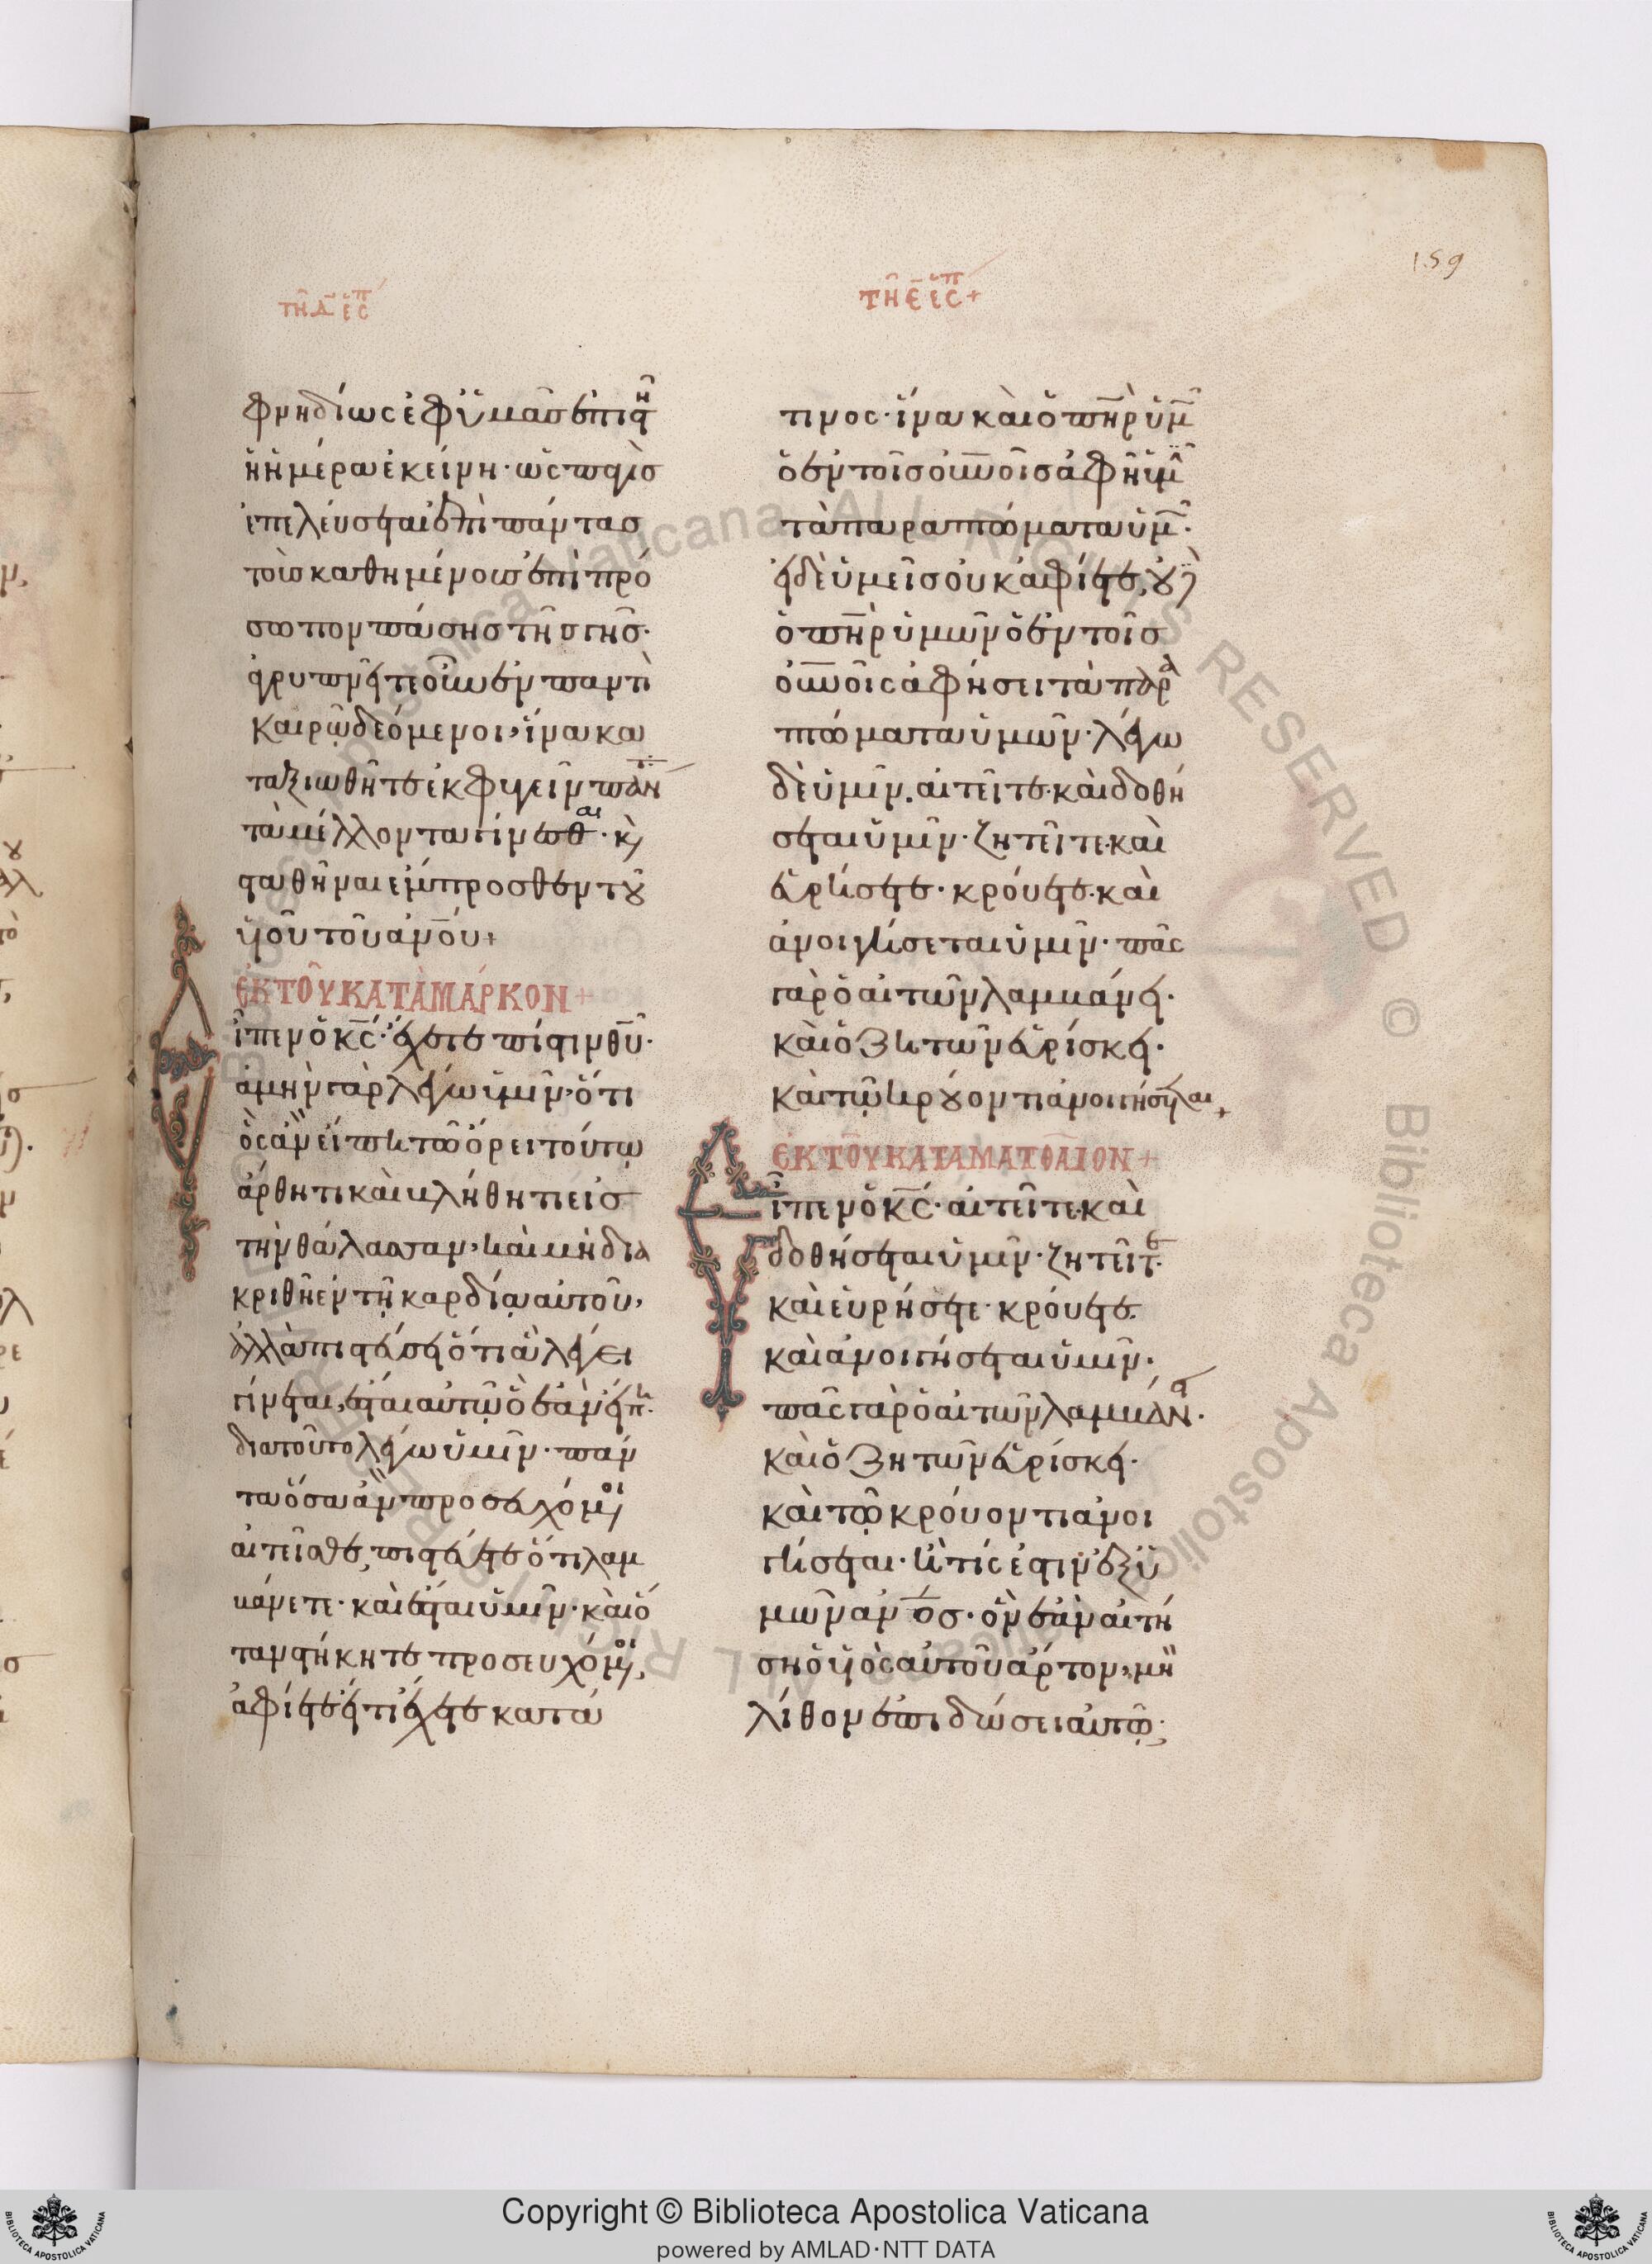 159
τῆ δ̅ ἑσπ
φνηδίως ἐφ ὑμᾶσ ἐπιστῆ
ἡ ἡμέρα ἐκείνη· ὡς παγὶσ
ἐπελεύσεται ἐπὶ πάντασ
τοὺσ καθημένουσ ἐπὶ πρό
σωπον πάσησ τῆσ γῆσ·
ἀγρυπνεῖτε οὖν ἐν παντὶ
καιρῷ δεόμενοι, ἵνα κα
ταξιωθῆτε ἐκφυγεῖν πάντα
τὰ μέλλοντα γίνεσθαι· κ(αὶ)
σταθῆναι ἔμπροσθεν τοῦ
υἱοῦ τοῦ ἀν̅ου+
ἐΚ ΤΟῦ ΚΑΤᾺ ΜΆΡΚΟΝ+
Εἶπεν ὁ κ̅ς· ἔχετε πίστιν θ̅υ·
ἀμὴν γὰρ λέγω ὑμῖν· ὅτι
ὃς ἂν εἴπη τῶ ὄρει τούτῳ
ἄρθητι καὶ βλήθητι εἰσ
τὴν θάλασσαν, καὶ μὴ δια
κριθῆ ἐν τῆ καρδία αὐτοῦ,
ἀλλὰ πιστεύσῃ ὅτι ἃ λέγει
γίνεται, ἔσται αὐτῷ ὃ ἐὰν εἴπη·
διατοῦτο λέγω ὑμῖν· πάν
τα ὅσα ἂν προσευχόμενοι
αἰτεῖσθε, πιστεύετε ὅτι λαμ
βάνετε· καὶ ἔσται ὑμῖν· καὶ ὅ
ταν στήκητε προσευχόμενοι,
ἀφίετε εἴ τι ἔχετε κατά
τῆ ε̅ ἑσπ+
τινος· ἵνα καὶ ὁ π̅ηρ ὑμῶν
ὁ ἐν τοῖσ οὐ̅νοῖσ ἀφῆ ὑμῖν
τὰ παραπτώματα ὑμῶν·
εἰ δὲ ὑμεῖσ οὐκ ἀφίετε, οὐδὲ
ὁ π̅ηρ ὑμῶν ὁ ἐν τοῖσ
οὐ̅νοῖς ἀφήσει τὰ παρα
πτώματα ὑμῶν· λέγω
δὲ ὑμῖν. αἰτεῖτε· καὶ δοθή
σεται ὑμῖν· ζητεῖτε· καὶ
εὑρήσετε· κρούετε· καὶ
ἀνοιγήσεται ὑμῖν· πᾶς
γὰρ ὁ αἰτῶν λαμβάνει·
καὶ ὁ ζητῶν εὑρίσκει·
καὶ τῷ κρούοντι ἀνοιγήσεται+
ἐΚ ΤΟῦ ΚΑΤΑ ΜΑΤΘΑῖΟΝ+
Εἶπεν ὁ κ̅ς· αἰτεῖτε· καὶ
δοθήσεται ὑμῖν· ζητεῖτε·
καὶ εὑρήσετε· κρούετε·
καὶ ἀνοιγήσεται ὑμῖν·
πᾶς γὰρ ὁ αἰτῶν λαμβάνει·
καὶ ὁ ζητῶν εὑρίσκει·
καὶ τῷ κρούοντι ἀνοι
γήσεται· ἢ τίς ἐστιν ἐξ ὑ
μῶν ἀν̅οσ· ὃν ἐὰν αἰτή
ση ὁ υἱὸς αὐτοῦ ἄρτον, μὴ
λίθον ἐπιδώσει αὐτῷ;
Copyright © Biblioteca Apostolica Vaticana
powered by AMLAD·NTT DATA